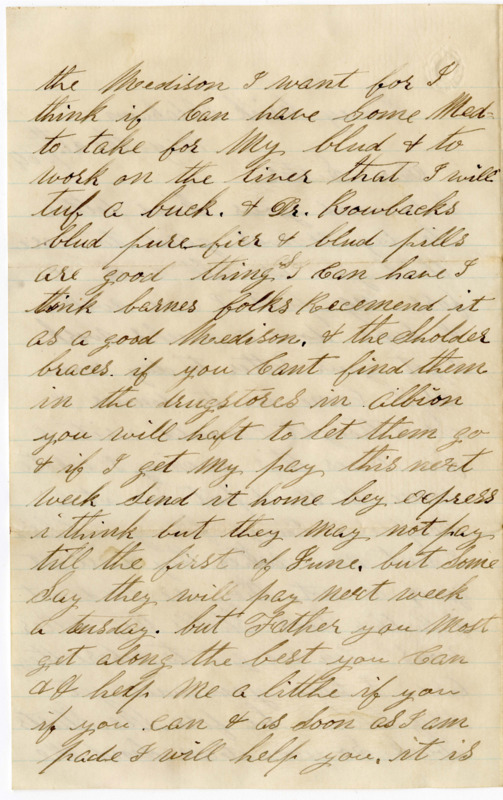 the Medison I want for I
think if Can have Some Med-
to take for My blud & to
work on the liver that I will
tuf a buck. & Dr. Rowbacks
blud pure fier & blud pills
are good things I Can have I
tink barnes folks Recemend it
as a good Medison. & the Sholder
braces. if you Cant find them
in the drugstores in Albion
you will haft to let them go
& if I get My pay this next
week Send it home bey express
i think but they May not pay
till the first of June. but Some
Say they will pay next week
a tusday. but Father you Most
get along the best you Can
& help Me a little if you
if you Can & as Soon as I am
pade I will help you. it is